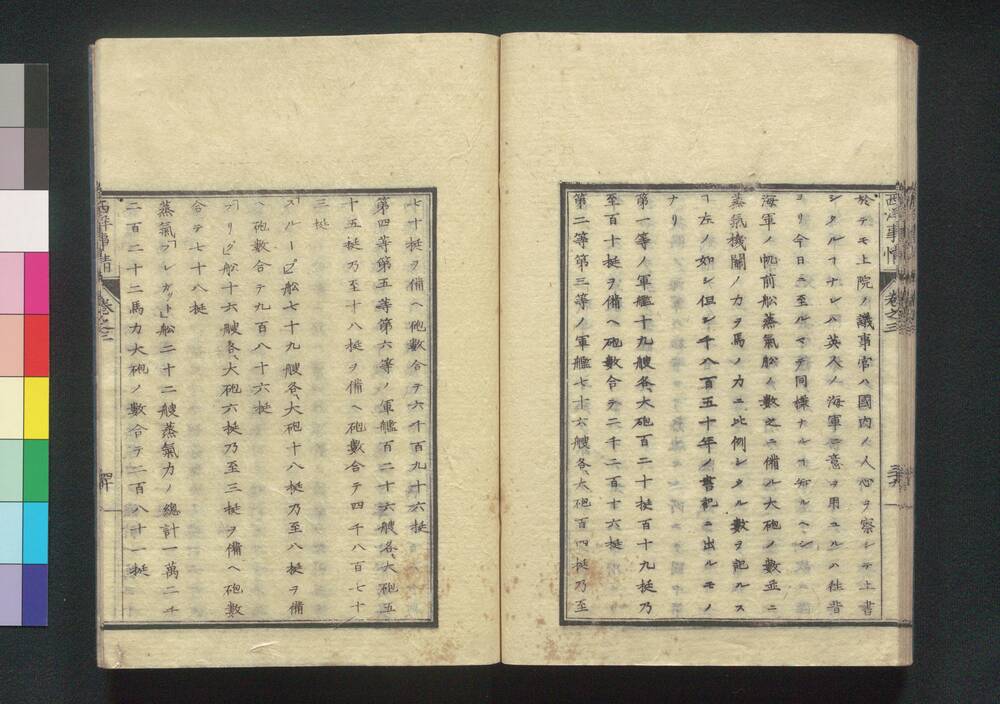 西洋事情 卷之三
於テモ上院ノ議事官ハ國内ノ人心ヲ察シテ上書
シタルヿナレハ英人ノ海軍ニ意ヲ用ユルハ往昔
ヨリ今日ニ至ルマテ同様ナルヿ知ルヘシ
海軍ノ帆前舩蒸氣舩ノ數之ニ備ル大砲ノ數並ニ
蒸氣機關ノ力ヲ馬ノ力ニ比例シタル數ヲ記ルス
ヿ左ノ如シ但シ千八百五十年ノ書記ニ出ルモノ
ナリ
第一等ノ軍艦十九艘各、大砲百二十挺百十九挺乃
至百十挺ヲ備ヘ砲數合テ二千二百十六挺
第二等第三等ノ軍艦七十六艘各、大砲百四挺乃至
七十挺ヲ備ヘ砲數合テ六千百九十六挺
第四等第五等第六等ノ軍艦百二十六艘各、大砲五
十五挺乃至十八挺ヲ備ヘ砲數合テ四千八百七十
三挺
「スルーピ」舩七十九艘各、大砲十八挺乃至八挺ヲ備
ヘ砲數合テ九百八十六挺
「ブリピ」舩十六艘各、大砲六挺乃至三挺ヲ備ヘ砲數
合テ七十八挺
蒸氣「フレガット」舩二十二艘蒸氣力ノ總計一萬二千
二百二十二馬力大砲ノ數合テ二百八十一挺
西洋事情 卷之三